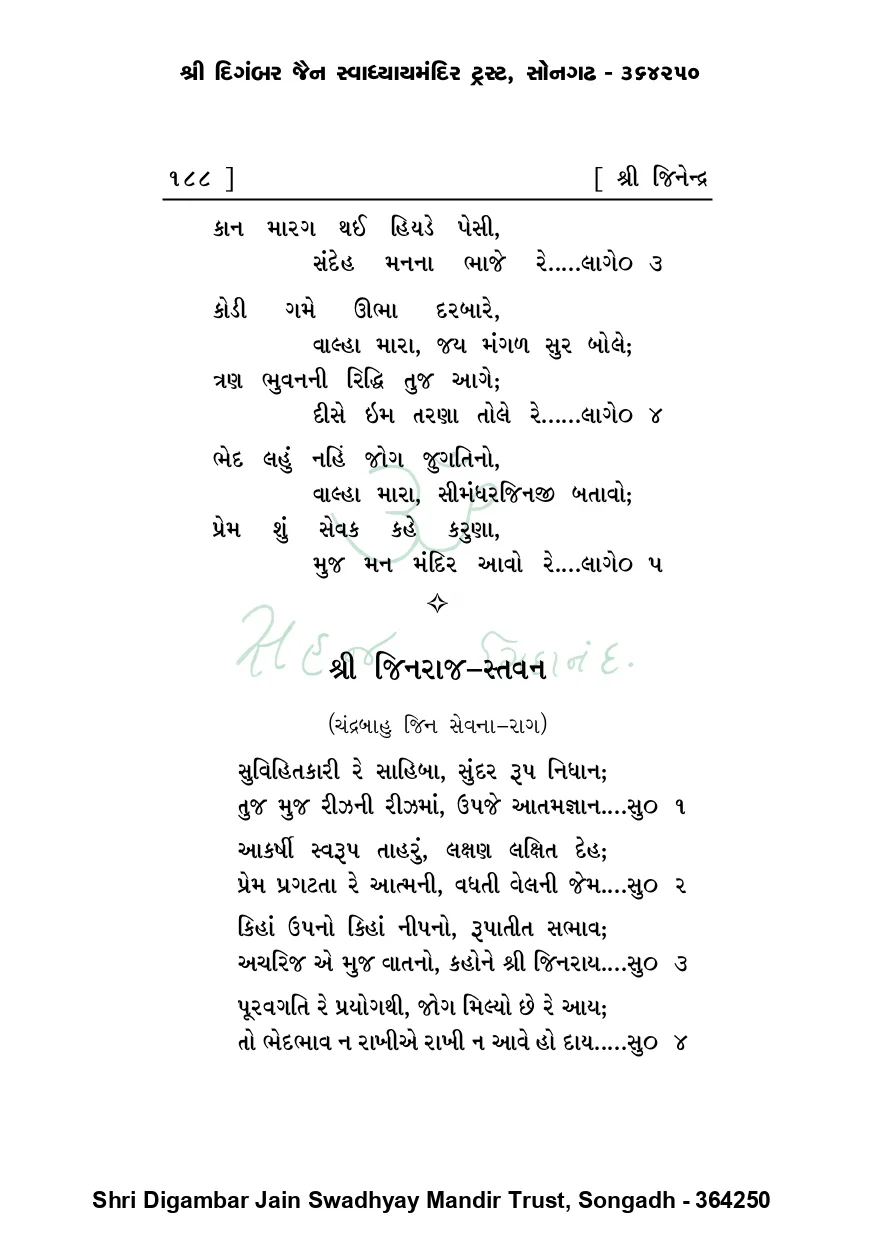 શ્રી દિગંબર જૈન સ્વાધ્યાયમંદિર ટ્રસ્ટ, સોનગઢ - ૩૬૪૨૫૦
૧૮૮ ] [ શ્રી જિનેન્દ્ર
કાન મારગ થઈ હિયડે પેસી,
સંદેહ મનના ભાજે રે.....લાગે૦ ૩
કોડી ગમે ઊભા દરબારે,
વાલ્હા મારા, જય મંગળ સુર બોલે;
ત્રણ ભુવનની રિદ્ધિ તુજ આગે;
દીસે ઇમ તરણા તોલે રે......લાગે૦ ૪
ભેદ લહું નહિં જોગ જુગતિનો,
વાલ્હા મારા, સીમંધરજિનજી બતાવો;
પ્રેમ શું સેવક કહે કરુણા,
મુજ મન મંદિર આવો રે....લાગે૦ ૫
સહજ ચિદાનંદ.
શ્રી જિનરાજ–સ્તવન
(ચંદ્રબાહુ જિન સેવના–રાગ)
સુવિહિતકારી રે સાહિબા, સુંદર રૂપ નિધાન;
તુજ મુજ રીઝની રીઝમાં, ઉપજે આતમજ્ઞાન....સુ૦ ૧
આકર્ષી સ્વરૂપ તાહરું, લક્ષણ લક્ષિત દેહ;
પ્રેમ પ્રગટતા રે આત્મની, વધતી વેલની જેમ....સુ૦ ૨
કિહાં ઉપનો કિહાં નીપનો, રૂપાતીત સભાવ;
અચરિજ એ મુજ વાતનો, કહોને શ્રી જિનરાય....સુ૦ ૩
પૂરવગતિ રે પ્રયોગથી, જોગ મિલ્યો છે રે આય;
તો ભેદભાવ ન રાખીએ રાખી ન આવે હો દાય.....સુ૦ ૪
Shri Digambar Jain Swadhyay Mandir Trust, Songadh - 364250